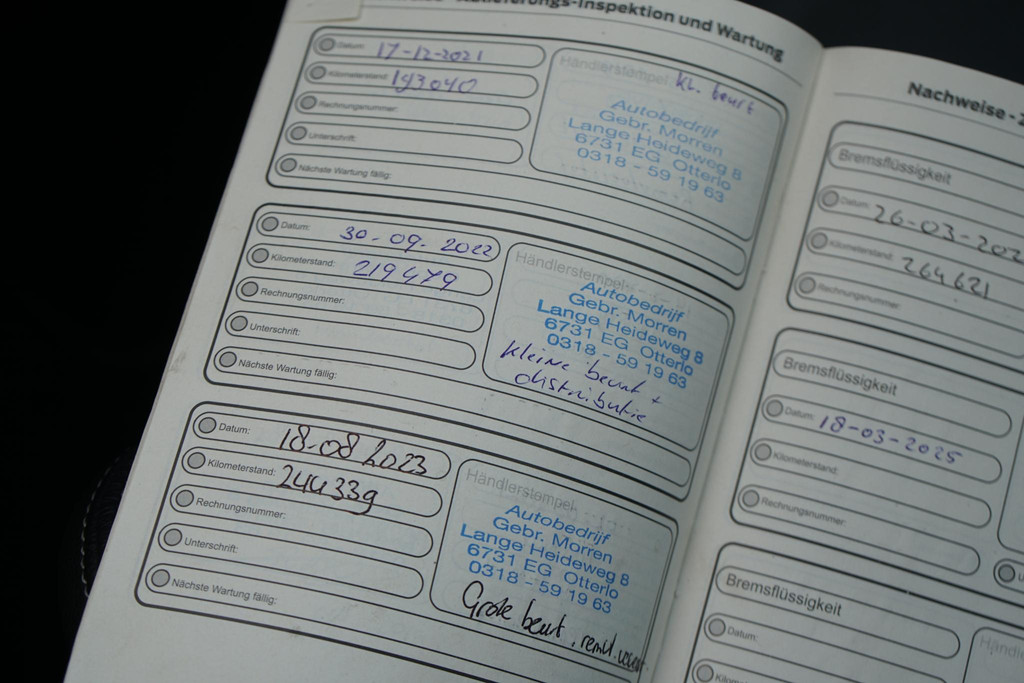 -Inspektion und Wartung
Datum: 17-12-2021
Kilometerstand: 193040
Rechnungsnummer:
Unterschrift:
Nächste Wartung fällig:
Händlerstempel: kl. beurt
Autobedrijf
Gebr. Morren
Lange Heideweg 8
6731 EG Otterlo
0318 - 59 19 63
Datum: 30-09-2022
Kilometerstand: 219479
Rechnungsnummer:
Unterschrift:
Nächste Wartung fällig:
Händlerstempel
Autobedrijf
Gebr. Morren
Lange Heideweg 8
6731 EG Otterlo
0318 - 59 19 63
kleine beurt +
distributie
Datum: 18-08 2023
Kilometerstand: 244339
Rechnungsnummer:
Unterschrift:
Nächste Wartung fällig:
Händlerstempel
Autobedrijf
Gebr. Morren
Lange Heideweg 8
6731 EG Otterlo
0318 - 59 19 63
Grote beurt, remvl.
Nachweise - 2
Bremsflüssigkeit
Datum: 26-03-202
Kilometerstand: 264621
Rechnungsnummer:
Bremsflüssigkeit
Datum: 18-03-2025
Kilometerstand:
Rechnungsnummer:
Bremsflüssigkeit
Datum:
Kilometerstand: